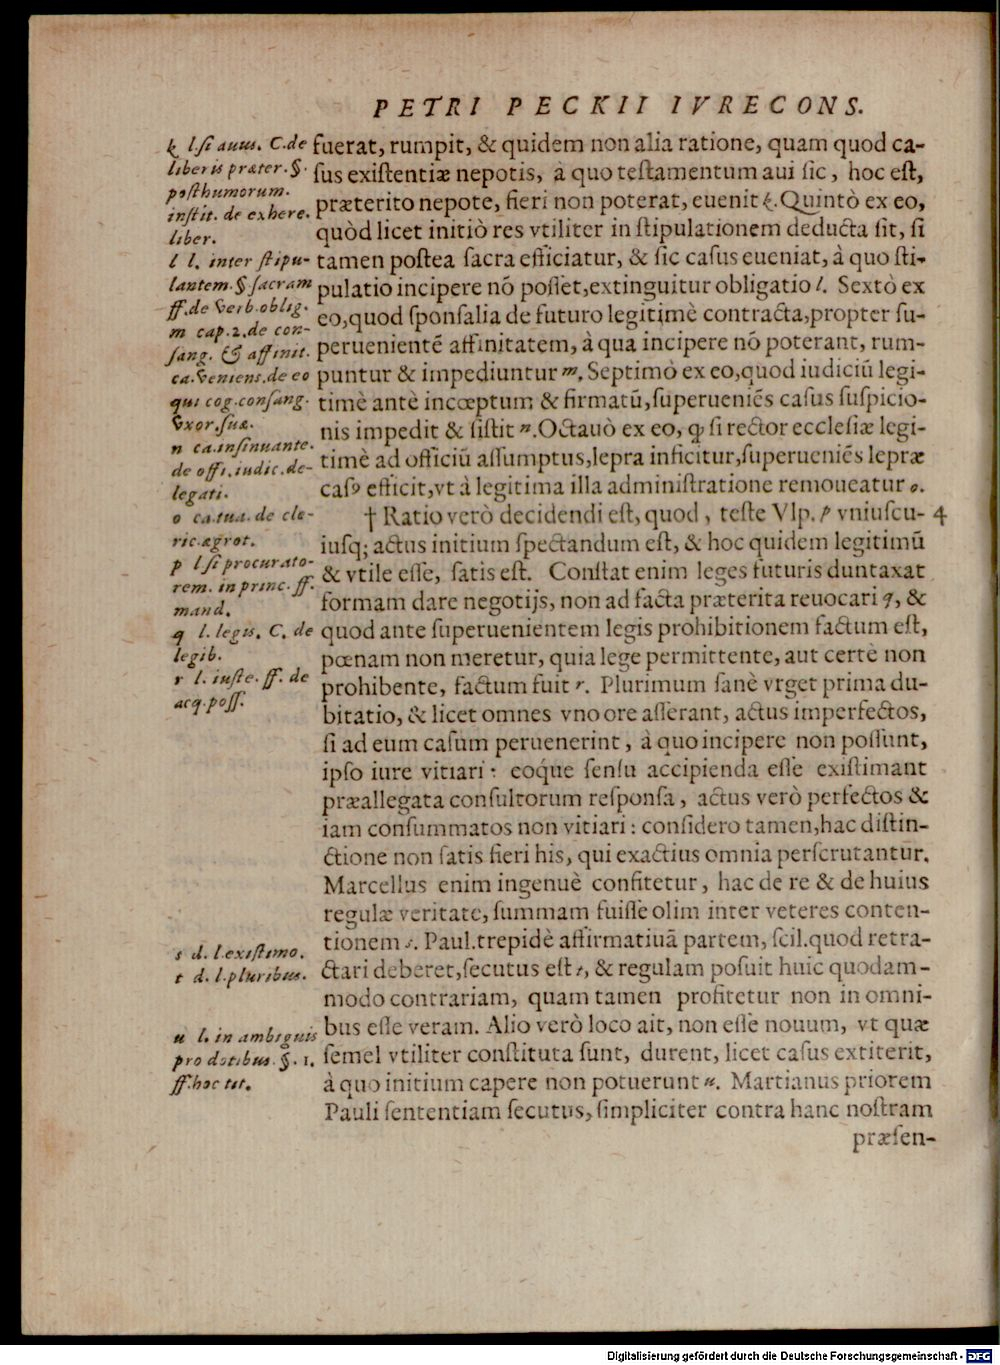 PETRI PECKII IVRECONS.
k l.ſi auus. C.de
liberis præter.§.
poſthumorum.
inſtit. de exhere.
liber.
l l. inter ſtipu-
lantem.§ ſacram
ff.de verb.oblig.
m cap.2.de con-
ſang. & affinit.
ca.veniens.de eo
qui cog.conſang.
vxor.ſuæ.
n ca.inſinuante.
de offi.iudic.de-
legati.
o ca.tua.de cle-
ric.ægrot.
p l.ſi procurato-
rem. in princ.ff.
mand.
q l. legis. C. de
legib.
r l. iuſte. ff. de
acq.poſſ.
s d. l.exiſtimo.
t d. l.pluribus.
u l. in ambiguis
pro dotibus.§.1.
ff.hoc tit.
fuerat, rumpit, & quidem non alia ratione, quam quod ca-
ſus exiſtentiæ nepotis, à quo teſtamentum aui ſic, hoc eſt,
præterito nepote, fieri non poterat, euenit k. Quintò ex eo,
quòd licet initiò res vtiliter in ſtipulationem deducta ſit, ſi
tamen poſtea ſacra efficiatur, & ſic caſus eueniat, à quo ſti-
pulatio incipere nō poſſet,extinguitur obligatio l. Sextò ex
eo,quod ſponſalia de futuro legitimè contracta,propter ſu-
peruenientē affinitatem, à qua incipere nō poterant, rum-
puntur & impediuntur m. Septimò ex eo,quod iudiciū legi-
timè antè incœptum & firmatū,ſuperueniēs caſus ſuſpicio-
nis impedit & ſiſtit n.Octauò ex eo, ꝙ ſi rector eccleſiæ legi-
timè ad officiū aſſumptus,lepra inficitur,ſuperueniēs lepræ
caſꝰ efficit,vt à legitima illa adminiſtratione remoueatur o.
† Ratio verò decidendi eſt, quod, teſte Vlp. p vniuſcu- 4
iuſq; actus initium ſpectandum eſt, & hoc quidem legitimū
& vtile eſſe, ſatis eſt. Conſtat enim leges futuris duntaxat
formam dare negotijs, non ad facta præterita reuocari q, &
quod ante ſuperuenientem legis prohibitionem factum eſt,
pœnam non meretur, quia lege permittente, aut certè non
prohibente, factum fuit r. Plurimum ſanè vrget prima du-
bitatio, & licet omnes vno ore aſſerant, actus imperfectos,
ſi ad eum caſum peruenerint, à quo incipere non poſſunt,
ipſo iure vitiari: eoq́ue ſenſu accipienda eſſe exiſtimant
præallegata conſultorum reſponſa, actus verò perfectos &
iam conſummatos non vitiari: conſidero tamen,hac diſtin-
ctione non ſatis fieri his, qui exactius omnia perſcrutantur.
Marcellus enim ingenuè confitetur, hac de re & de huius
regulæ veritate, ſummam fuiſſe olim inter veteres conten-
tionem s. Paul.trepidè affirmatiuā partem, ſcil.quod retra-
ctari deberet,ſecutus eſt t, & regulam poſuit huic quodam-
modo contrariam, quam tamen profitetur non in omni-
bus eſſe veram. Alio verò loco ait, non eſſe nouum, vt quæ
ſemel vtiliter conſtituta ſunt, durent, licet caſus extiterit,
à quo initium capere non potuerunt u. Martianus priorem
Pauli ſententiam ſecutus, ſimpliciter contra hanc noſtram
præſen-
Digitalisierung gefördert durch die Deutsche Forschungsgemeinschaft - DFG